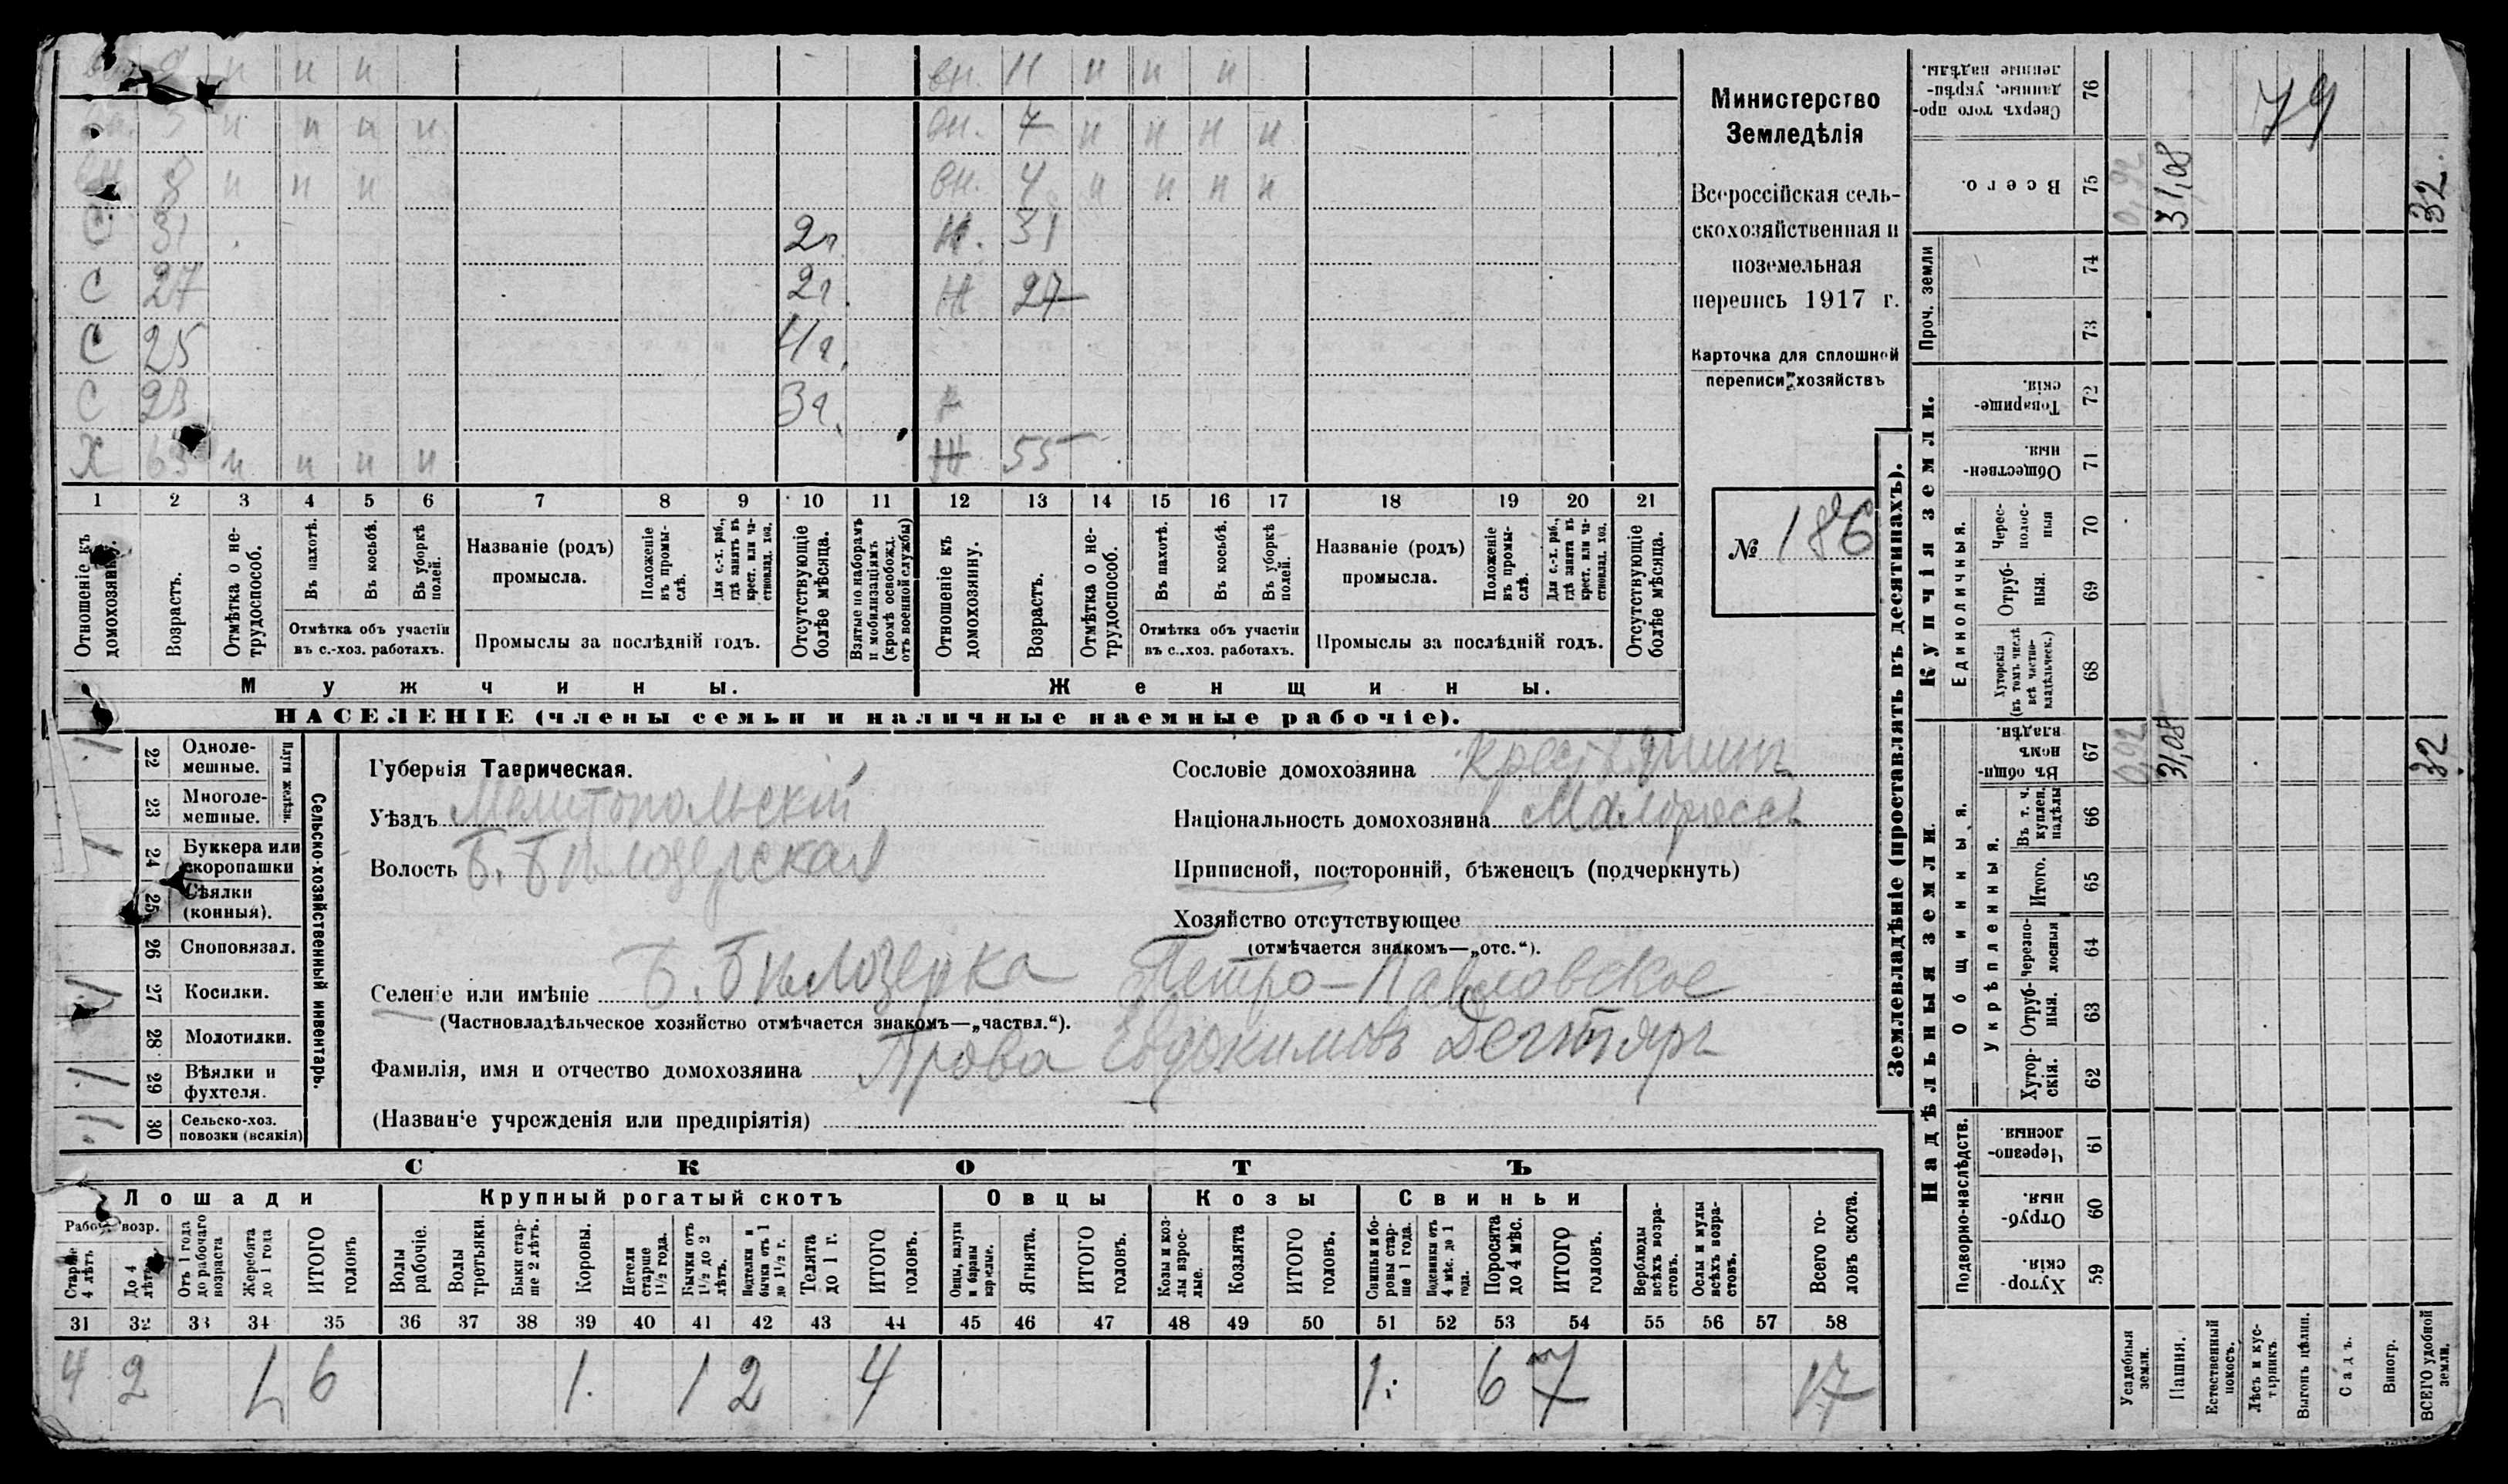 вн. 9 и и и вн. 11 и и и
и и и и вн. 7 и и и и
вн. 8 и и и вн. 4 и и и и
С 31 2г. Н. 31
С 27 2г. Н 27
С 25 4г.
С 23 3г.
Х 63 и и и и Ж 55
1 2 3 4 5 6 7 8 9 10 11 12 13 14 15 16 17 18 19 20 21
Отношеніе къ домохозяину.
Возрастъ.
Отмѣтка о нетрудоспособ.
Въ пахотѣ.
Въ косьбѣ.
Въ уборкѣ полей.
Отмѣтка объ участіи въ с.-хоз. работахъ.
Названіе (родъ) промысла.
Положеніе въ промыслѣ.
Для с.-х. раб., гдѣ занятъ въ крест. или частновлад. хоз.
Промыслы за послѣдній годъ.
Отсутствующіе болѣе мѣсяца.
Взятые по наборамъ и мобилизаціямъ (кромѣ освобожд. отъ военной службы)
Отношеніе къ домохозяину.
Возрастъ.
Отмѣтка о нетрудоспособ.
Въ пахотѣ.
Въ косьбѣ.
Въ уборкѣ полей.
Отмѣтка объ участіи въ с.-хоз. работахъ.
Названіе (родъ) промысла.
Положеніе въ промыслѣ.
Для с.-х. раб., гдѣ занята въ крест. или частновлад. хоз.
Промыслы за послѣдній годъ.
Отсутствующіе болѣе мѣсяца.
Мужчины. Женщины.
НАСЕЛЕНІЕ (члены семьи и наличные наемные рабочіе).
Министерство
Земледѣлія
Всероссійская сель-
скохозяйственная и
поземельная
перепись 1917 г.
Карточка для сплошной
переписи хозяйствъ
№ 186
Сельско-хозяйственный инвентарь.
Плуги желѣзн.
22 Одноле-мешные. 1
23 Многоле-мешные.
24 Буккера или скоропашки 1
25 Сѣялки (конныя).
26 Сноповязал.
27 Косилки. 1
28 Молотилки.
29 Вѣялки и фухтеля. 1
30 Сельско-хоз. повозки (всякія)
Губернія Таврическая.
Уѣздъ Мелитопольскій
Волость Б. Бѣлозерская
Сословіе домохозяина крестьянинъ
Національность домохозяина Малороссъ
Приписной, посторонній, бѣженецъ (подчеркнуть)
Хозяйство отсутствующее
(отмѣчается знакомъ—„отс.“).
Селеніе или имѣніе Б. Бѣлозерка Петро-Павловское
(Частновладѣльческое хозяйство отмѣчается знакомъ—„частвл.“).
Фамилія, имя и отчество домохозяина Прова Евдокимовъ Дегтяръ
(Названіе учрежденія или предпріятія)
СКОТЪ
Лошади Крупный рогатый скотъ Овцы Козы Свиньи
Рабоч. возр.
Старше 4 лѣтъ
До 4 лѣтъ
Отъ 1 года до рабочаго возраста
Жеребята до 1 года
ИТОГО головъ
Волы рабочіе.
Волы третьяки.
Быки старше 2 лѣтъ.
Коровы.
Нетели старше 1½ года.
Бычки отъ 1½ до 2 лѣтъ.
Подтелки и бычки отъ 1 до 1½ г.
Телята до 1 г.
ИТОГО головъ.
Овцы, валухи и бараны взрослые.
Ягнята.
ИТОГО головъ.
Козы и козлы взрослые.
Козлята
ИТОГО головъ.
Свиньи и боровы старше 1 года.
Подсвинки отъ 4 мѣс. до 1 года.
Поросята до 4 мѣс.
ИТОГО головъ.
Верблюды всѣхъ возрастовъ.
Ослы и мулы всѣхъ возрастовъ.
Всего головъ скота.
31 32 33 34 35 36 37 38 39 40 41 42 43 44 45 46 47 48 49 50 51 52 53 54 55 56 57 58
4 2 6 1. 1 2 4 1. 6 7 17
Землевладѣніе (проставлять въ десятинахъ).
Надѣльныя земли. Купчія земли. Проч. земли
Подворно-наслѣдств.
Общинныя.
Укрѣпленныя.
Единоличныя.
76 Сверхъ того проданные, укрѣпленные надѣлы.
75 Всего. 0,92 31,08 32.
74
73
72 Товарищескія.
71 Общественныя.
70 Чересполосныя
69 Отрубныя.
68 Хуторскія (въ томъ числѣ всѣ частновладѣльческ.)
67 Въ общинномъ владѣн. 0,92 31,08 32
66 Въ т. ч. куплен. надѣлы
65 Итого.
64 Черезполосныя
63 Отрубныя.
62 Хуторскія.
61 Черезполосныя.
60 Отрубныя.
59 Хуторскія.
79
Усадебныя земли.
Пашня.
Естественный покосъ.
Лѣсъ и кустарникъ
Выгонъ цѣлин.
Садъ.
Виногр.
ВСЕГО удобной земли.